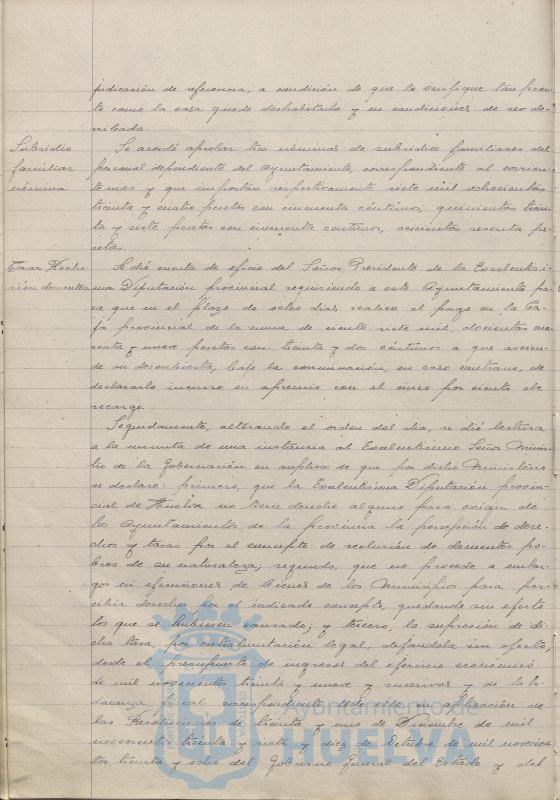 judicación de referencia, a condición de que lo verifique tan pron-
to como la casa quede deshabitada y en condiciones de ser de-
rribada
Subsidio
familiar
nómina
Se acordó aprobar tres nóminas de subsidios familiares del
personal dependiente del Ayuntamiento, correspondiente al corrien-
te mes y que importan respectivamente siete mil ochocientas
treinta y cuatro pesetas con cincuenta céntimos, quinientas trein-
ta y siete pesetas con cincuenta céntimos, seiscientas sesenta pe-
setas.
Tasa Reclu-
sión dementes
Se dió cuenta de oficio del Señor Presidente de la Excelentísi-
ma Diputación provincial requiriendo a este Ayuntamiento pa-
ra que en el plazo de ocho días realice el pago en la Ca-
ja provincial de la suma de ciento siete mil doscientas
y nueve pesetas con treinta y dos céntimos a que ascien-
de su descubierto, bajo la conminación, en caso contrario, de
declararlo incurso en apremio con el cinco por ciento de
recargo.
Seguidamente, alterando el orden del día, se dió lectura
a la minuta de una instancia al Excelentísimo Señor Minis-
tro de la Gobernación en suplica de que por dicho Ministerio
se declare: primero, que la Excelentísima Diputación provin-
cial de Huelva no tiene derecho alguno para exigir de
los Ayuntamientos de la provincia la percepción de dere-
chos y tasas por el concepto de reclusión de dementes po-
bres de su naturaleza; segundo, que no procede a embar-
gos ni ejecuciones de bienes de los Municipios para per-
cibir derechos por el indicado concepto, quedando sin efecto
los que se hubiesen causado; y tercero, la supresión de di-
cha tasa, por extralimitación legal, dejándola sin efecto,
desde el presupuesto de ingresos del ejercicio económico
de mil novecientos treinta y nueve y sucesivos y de la Or-
denanza fiscal correspondiente, todo ello en aplicación de
las Resoluciones de treinta y uno de Diciembre de mil
novecientos treinta y siete y diez de Octubre de mil novecien-
tos treinta y ocho del Gobierno General del Estado y del
Ayuntamiento de
HUELVA